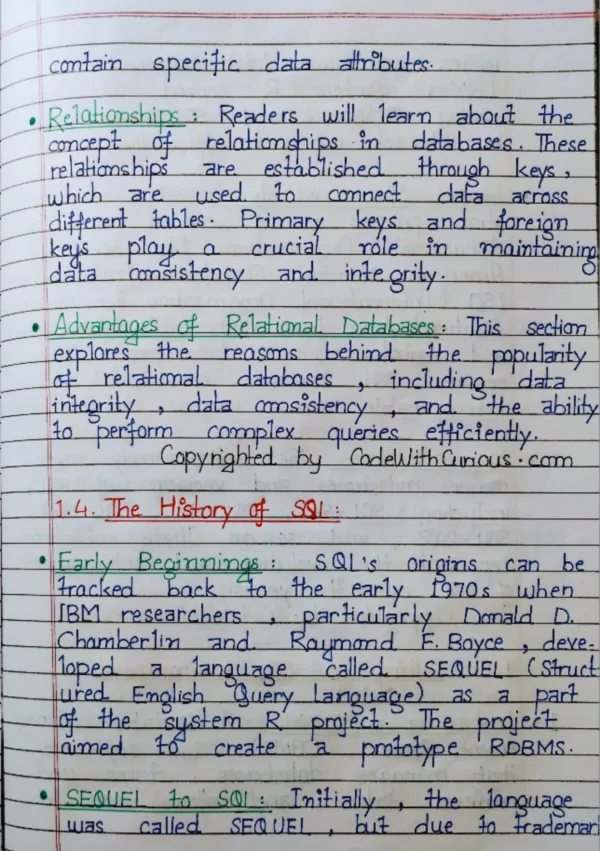 contain specific data attributes.
• Relationships : Readers will learn about the
concept of relationships in databases. These
relationships are established through keys,
which are used to connect data across
different tables. Primary keys and foreign
keys play a crucial role in maintaining
data consistency and integrity.
• Advantages of Relational Databases : This section
explores the reasons behind the popularity
of relational databases , including data
integrity , data consistency , and the ability
to perform complex queries efficiently.
Copyrighted by CodeWithCurious.com
1.4. The History of SQL :
• Early Beginnings : SQL's origins can be
tracked back to the early 1970s when
IBM researchers , particularly Donald D.
Chamberlin and Raymond F. Boyce , deve-
loped a language called SEQUEL (Struct
ured English Query Language) as a part
of the system R project. The project
aimed to create a prototype RDBMS.
• SEQUEL to SQL : Initially , the language
was called SEQUEL , but due to trademar